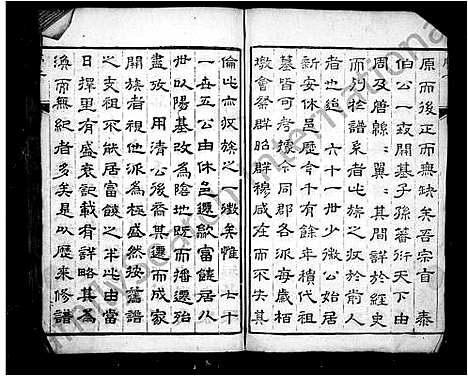 原而後正而無缺矣吾宗自 泰
伯公一寂開基子孫蕃衍天下由
周及唐緜緜翼翼其間詳於經史
而行於譜系者亡族之攷於前人
者也迨 六十一世少微公始居
新安休邑歷今千有餘年積代祖
墓皆可考據令同郡各派每歲栢
墩會祭群昭群穆咸在而不失其
倫此亦収族之徵矣惟 七十
一世五公由休邑遷歙富饒居八
世以陽基改為陰地既而播遷殆
盡攷 用清公後裔其遷而成家
開族者視他派為極盛然按舊譜
之支祖不能居富饒之半此由當
日擇里有盛衰記載有詳略其為
渙而無紀者多矣是以歷来修譜